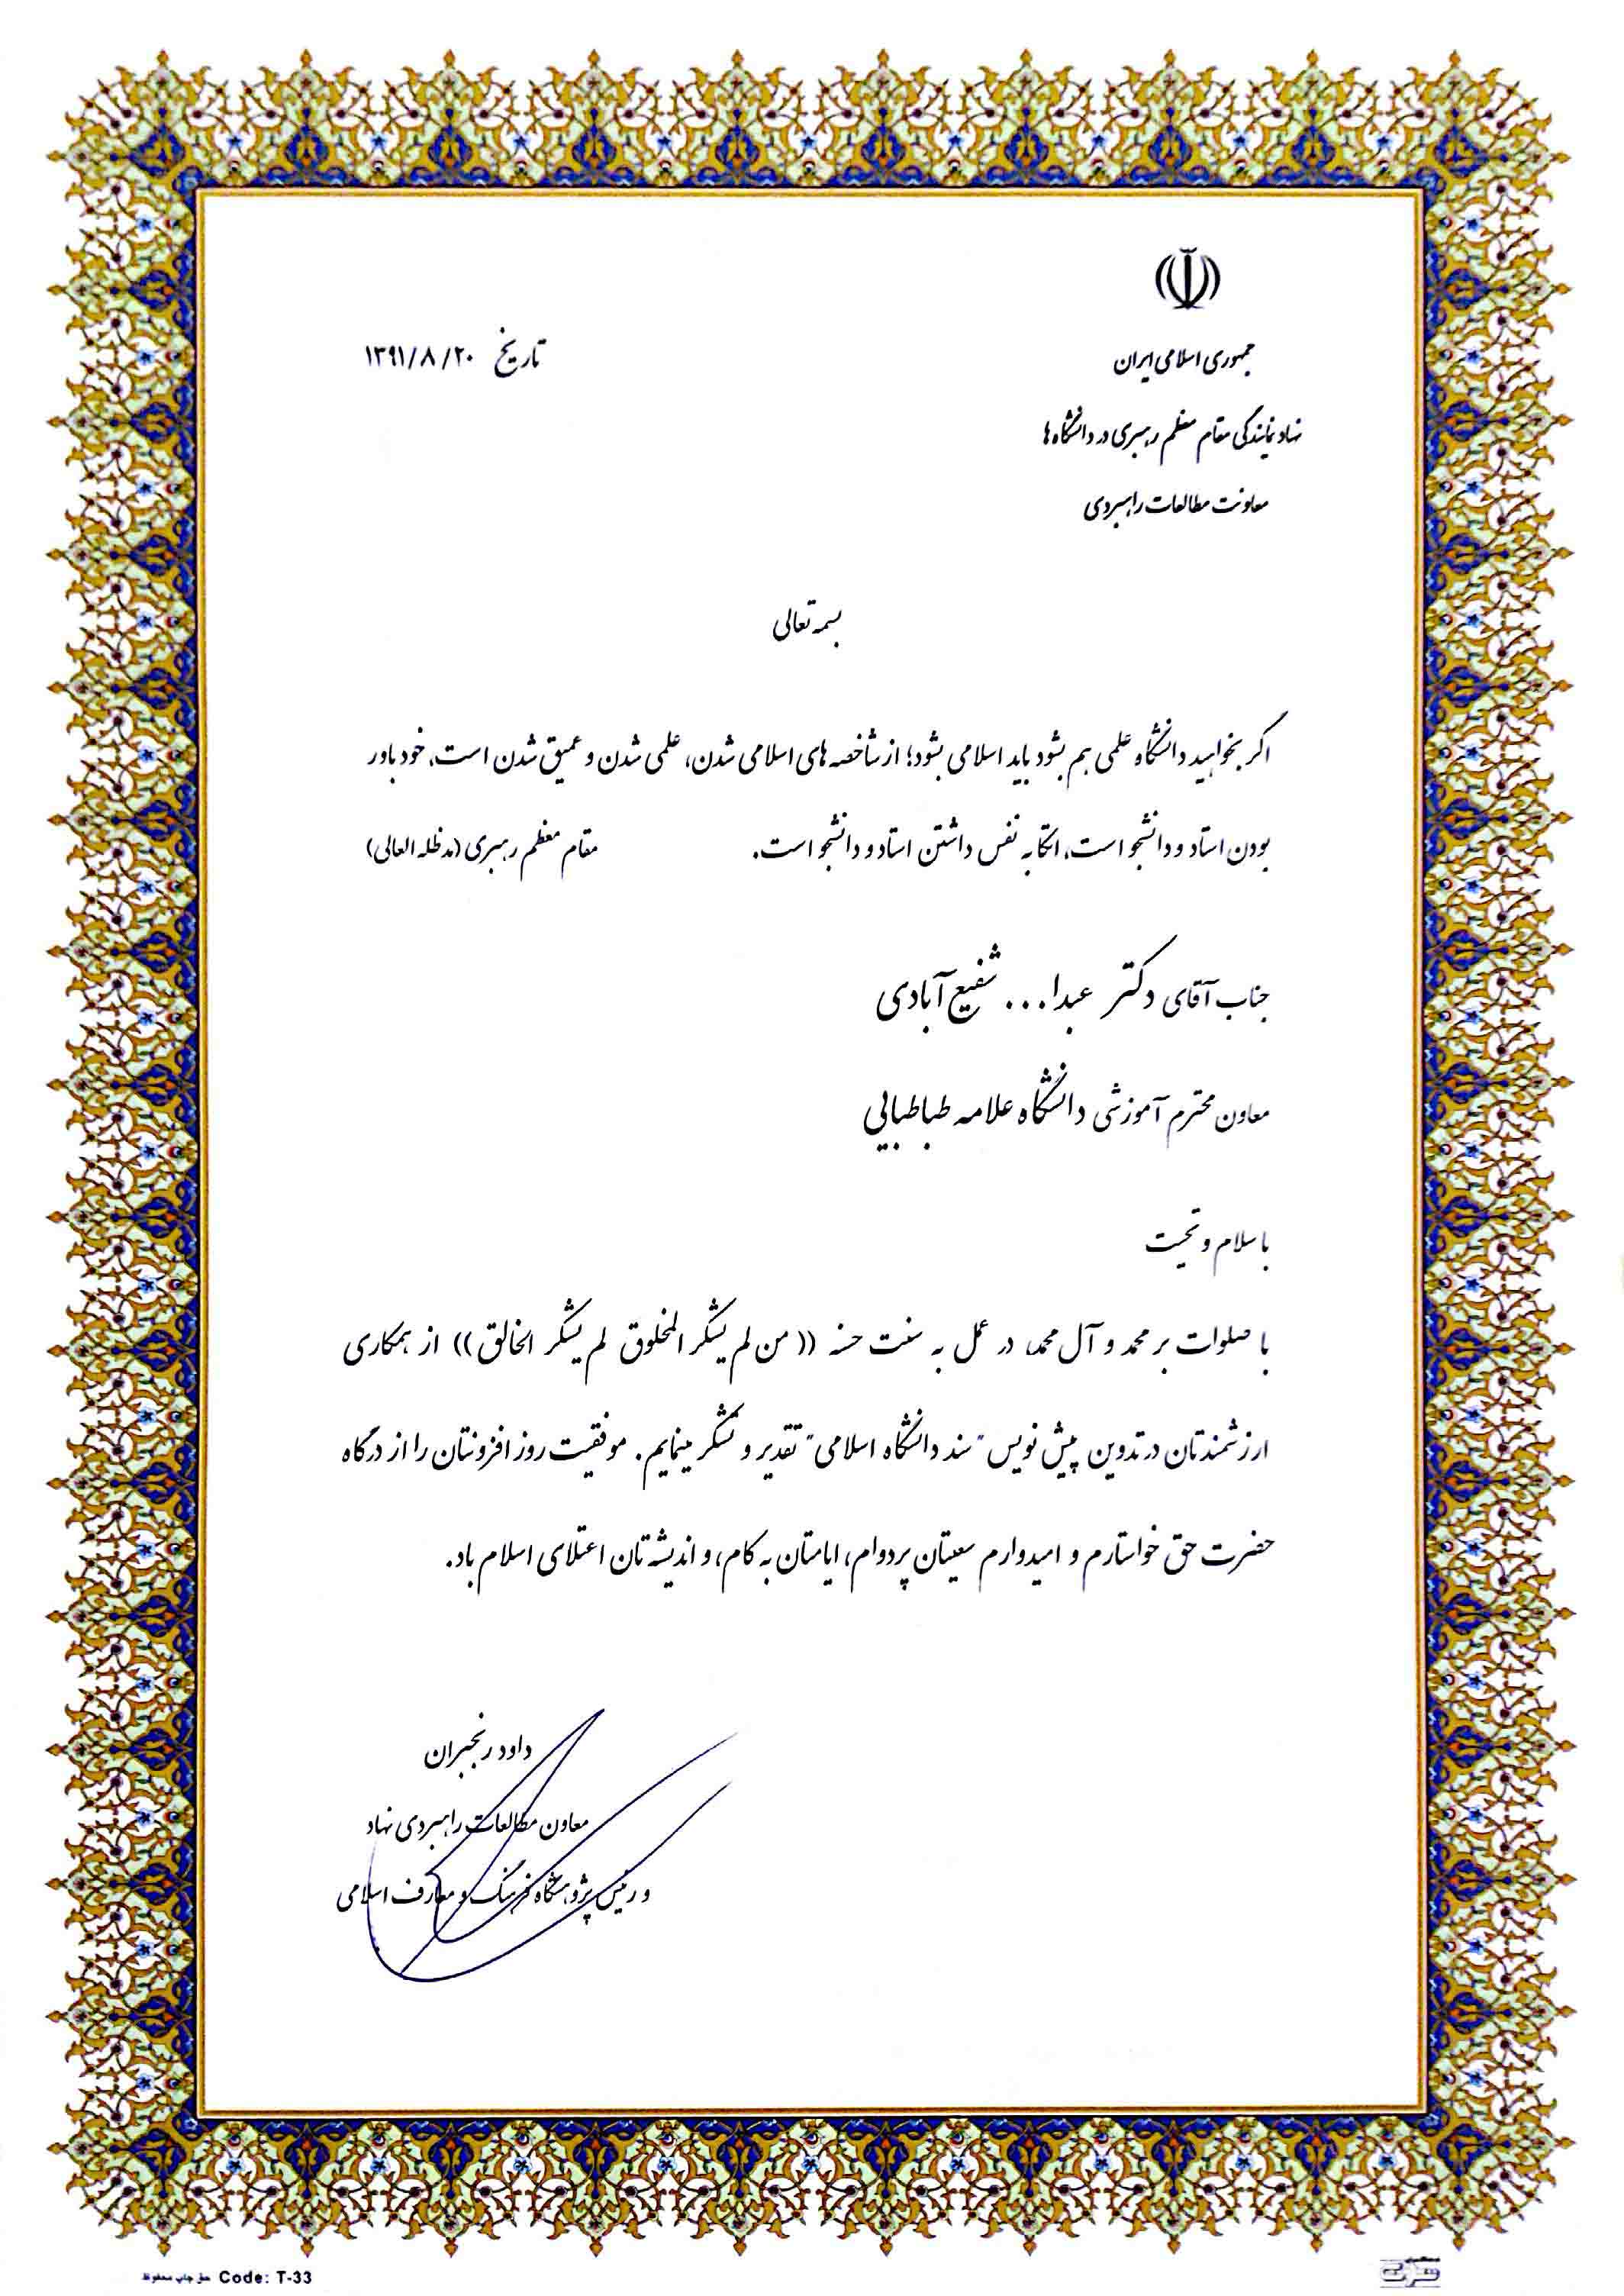 جمهوری اسلامی ایران
تاریخ ۱۳۹۱/۸/۲۰
نهاد نمایندگی مقام معظم رهبری در دانشگاه ها
معاونت مطالعات راهبردی
بسمه تعالی
اگر بخواهید دانشگاه علمی هم بشود باید اسلامی بشود؛ از شاخصه های اسلامی شدن، علمی شدن و عمیق شدن است، خود باور
بودن استاد و دانشجو است، اتکا به نفس داشتن استاد و دانشجو است. مقام معظم رهبری (مدظله العالی)
جناب آقای دکتر عبدا... شفیع آبادی
معاون محترم آموزشی دانشگاه علامه طباطبایی
با سلام و تحیت
با صلوات بر محمد و آل محمد، در عمل به سنت حسنه ((من لم یشکر المخلوق لم یشکر الخالق)) از همکاری
ارزشمندتان در تدوین پیش نویس "سند دانشگاه اسلامی" تقدیر و تشکر مینمایم. موفقیت روز افزونتان را از درگاه
حضرت حق خواستارم و امیدوارم سعیتان پردوام، ایامتان به کام، و اندیشه تان اعتلای اسلام باد.
داود رنجبران
معاون مطالعات راهبردی نهاد
و رئیس پژوهشگاه فرهنگ و معارف اسلامی
حق چاپ محفوظ Code: T-33